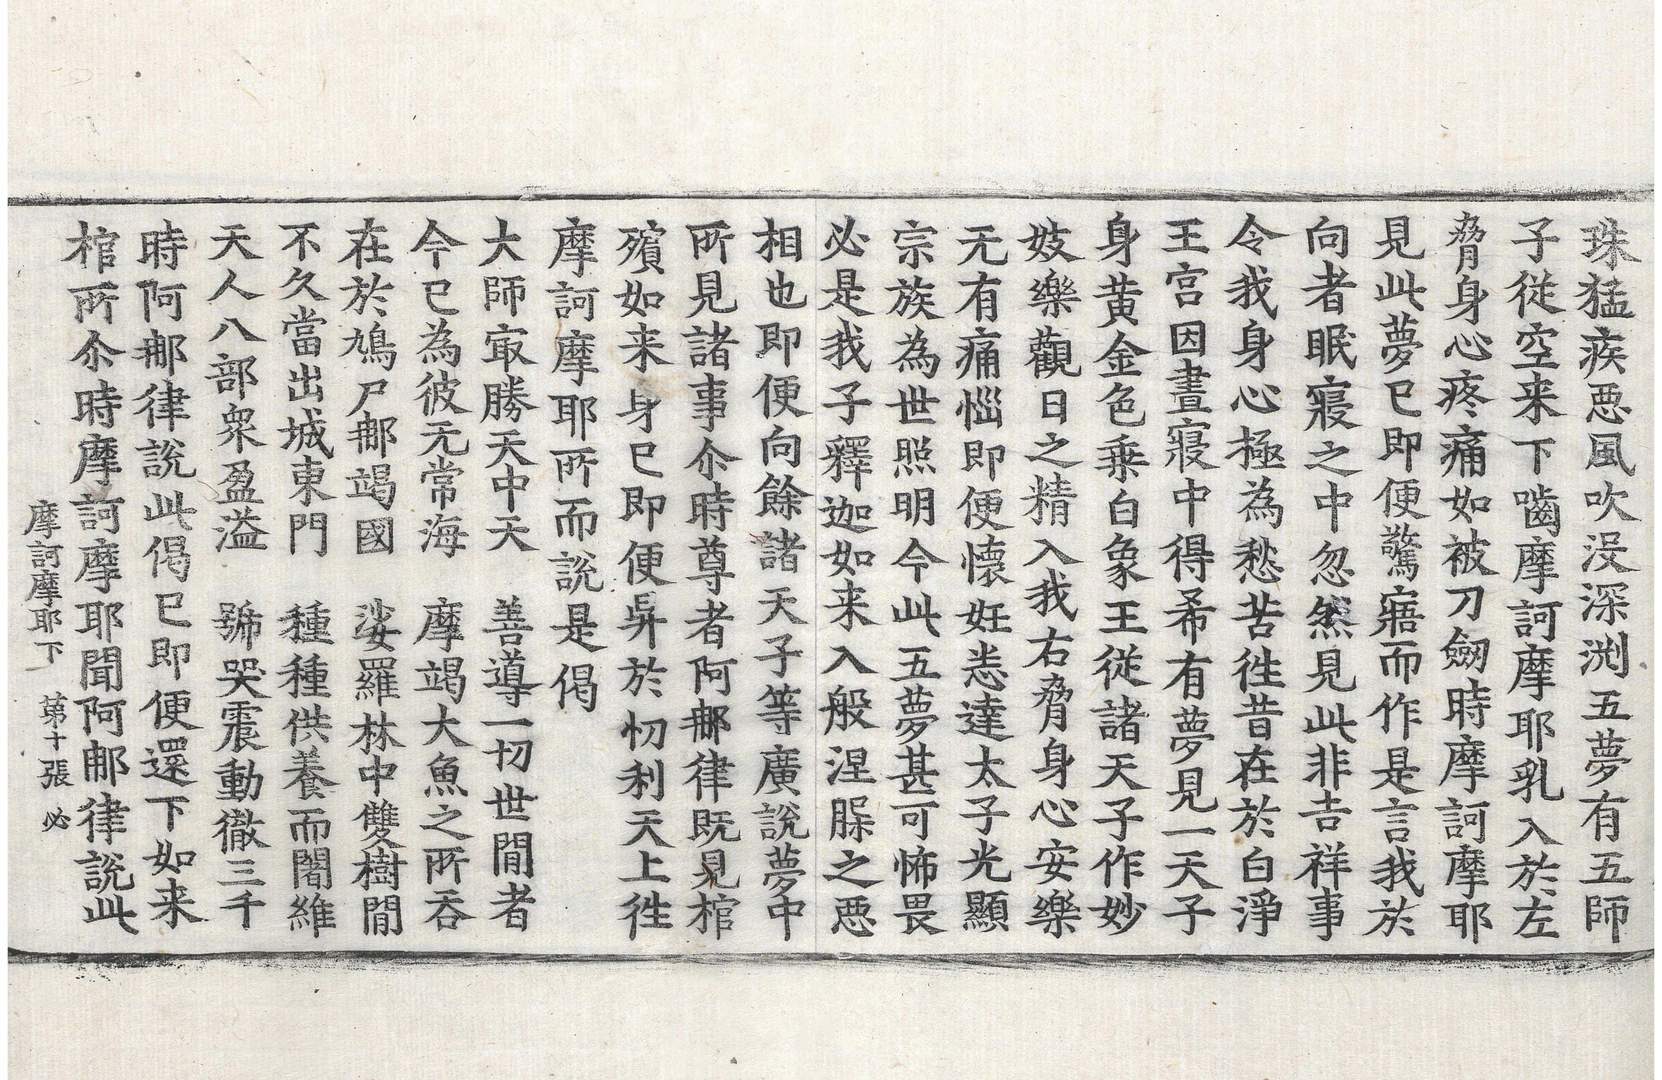 珠猛疾惡風吹没深渕五夢有五師
子從空来下嚙摩訶摩耶乳入於左
脅身心疼痛如被刀劒時摩訶摩耶
見此夢已即便驚寤而作是言我於
向者眠寢之中忽然見此非吉祥事
令我身心極為愁苦徃昔在於白淨
王宫因晝寢中得希有夢見一天子
身黄金色乗白象王從諸天子作妙
妓樂觀日之精入我右脅身心安樂
无有痛惱即便懐妊悉達太子光顯
宗族為世照明今此五夢甚可怖畏
必是我子釋迦如来入般涅槃之惡
相也即便向餘諸天子等廣説夢中
所見諸事尒時尊者阿𨚗律既見棺
殯如来身已即便昇於忉利天上徃
摩訶摩耶所而説是偈
大師㝡勝天中天　善導一切世間者
今已為彼无常海　摩竭大魚之所吞
在於鳩尸𨚗竭國　娑羅林中雙樹間
不久當出城東門　種種供養而闍維
天人八部衆盈溢　號哭震動徹三千
時阿𨚗律説此偈已即便還下如来
棺所尒時摩訶摩耶聞阿𨚗律説此
摩訶摩耶下　第十張　必